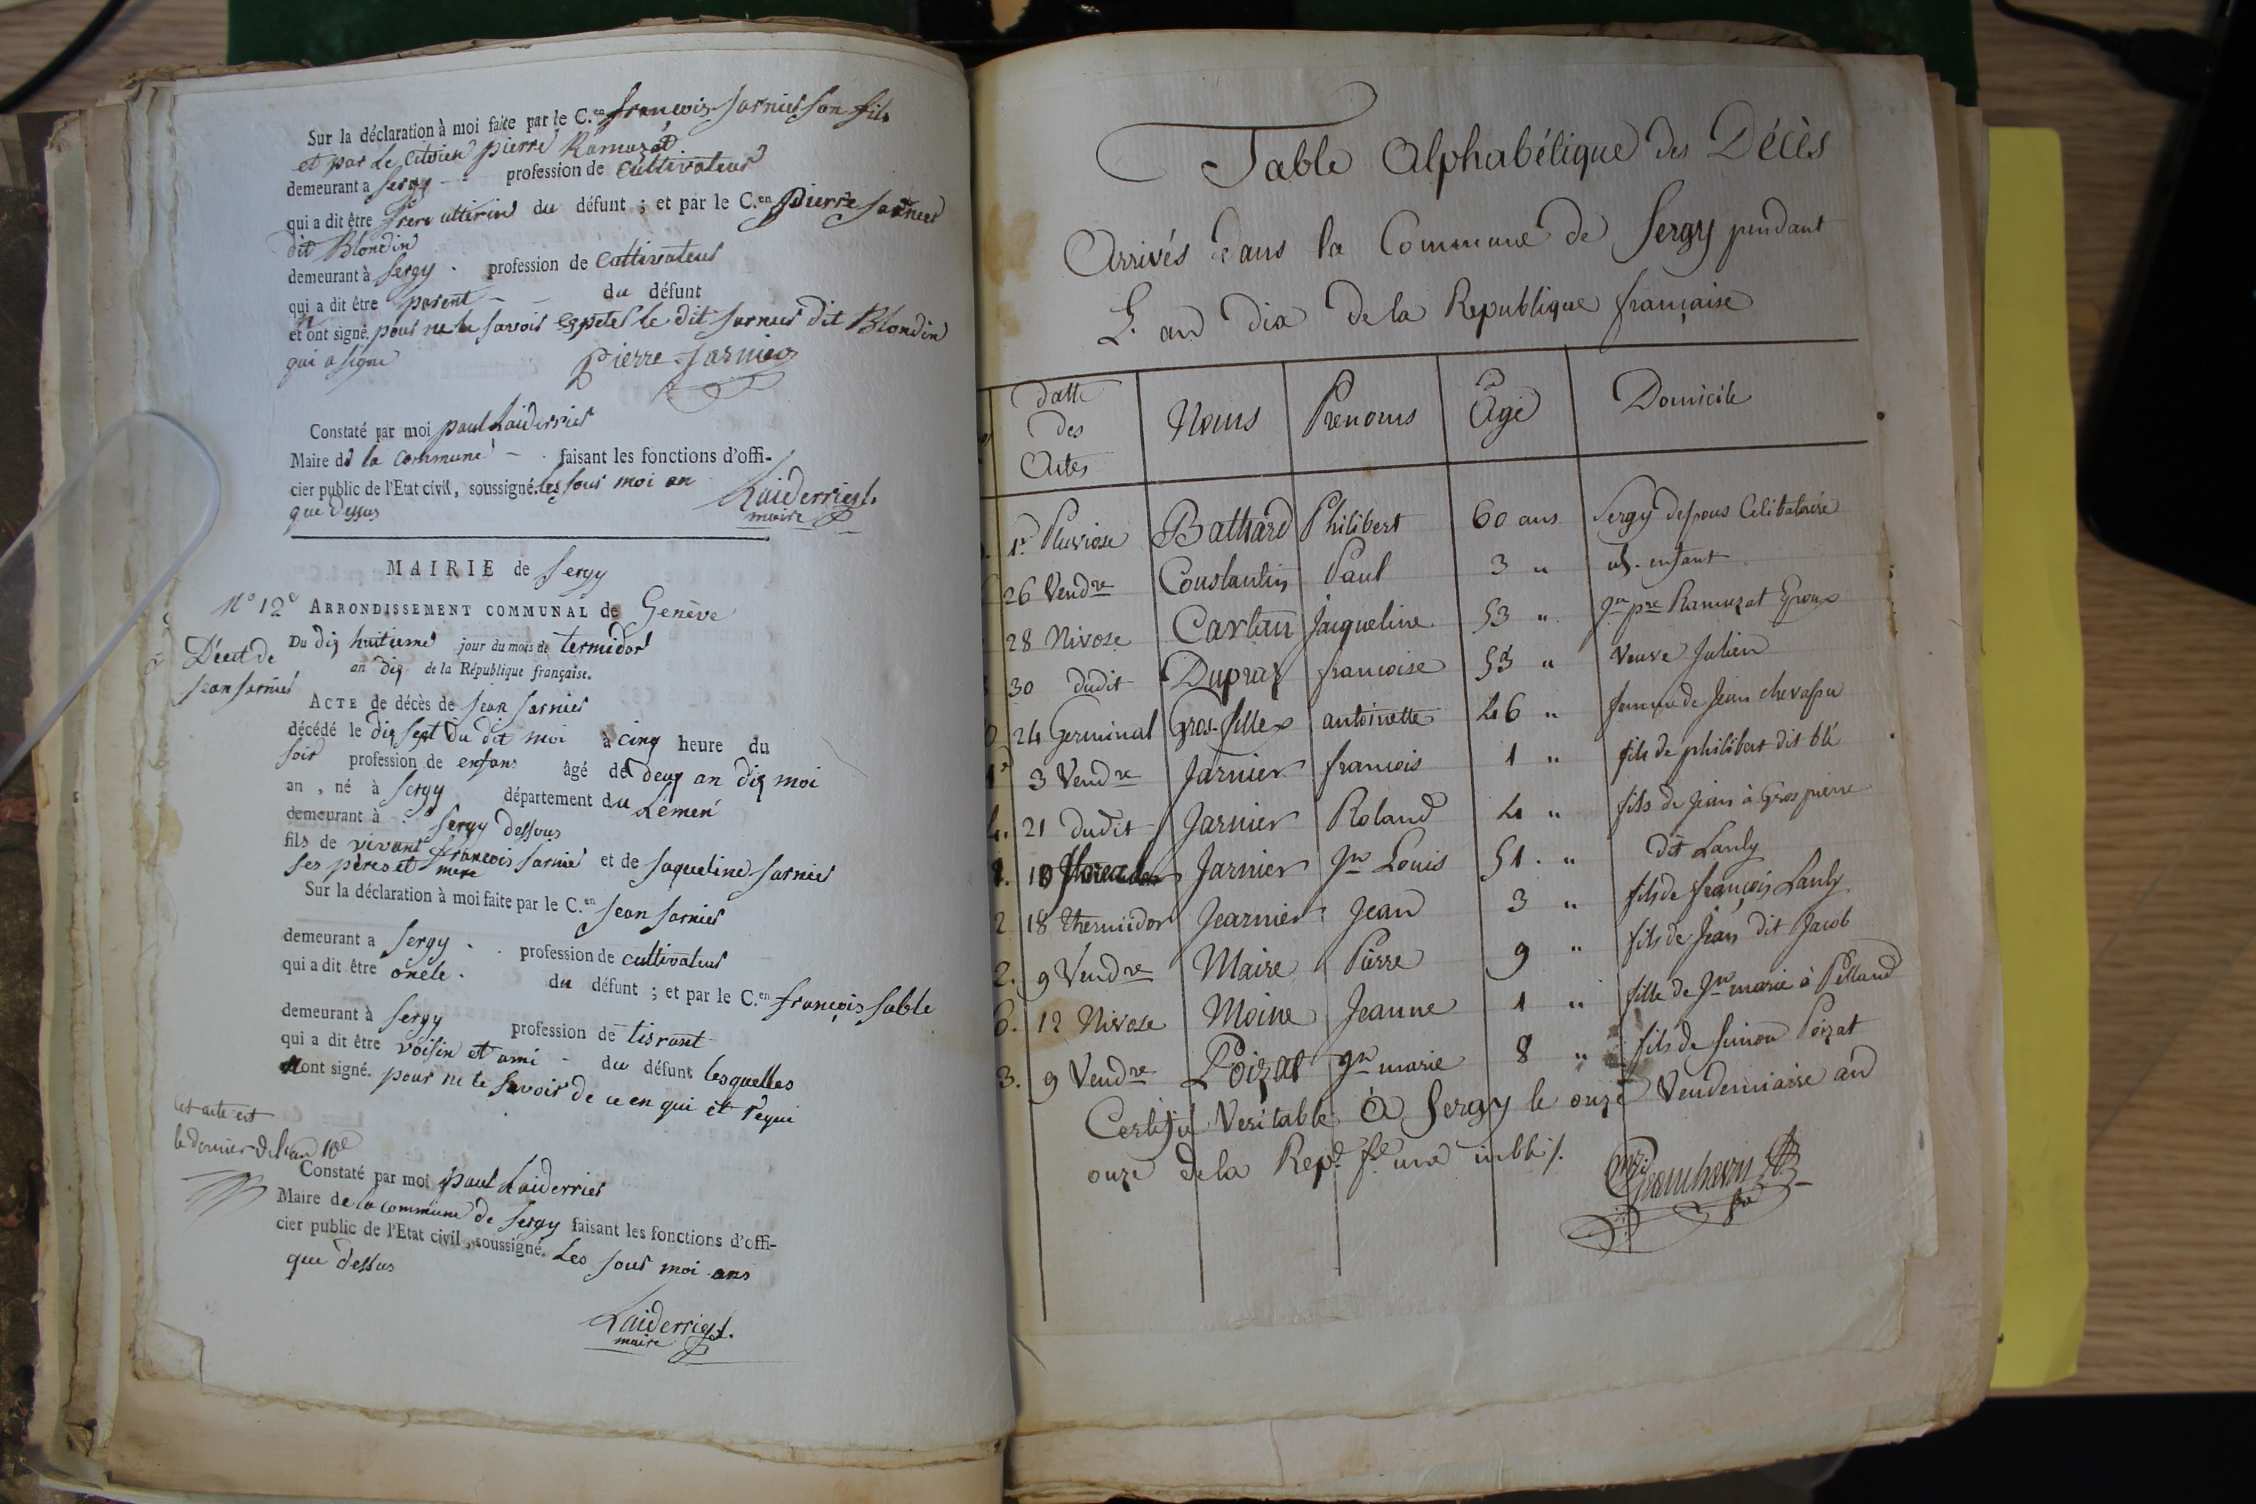 Sur la déclaration à moi faite par le C.en françois Jarnier son fils
et par le Citoien pierre Ramuzat
demeurant a Sergy - - profession de cultivateur
qui a dit être frere utterin du défunt ; et par le C.en pierre Jarnier
dit Blondin
demeurant à Sergy . profession de cultivateur
qui a dit être parent - - du défunt
et n ont signé. pour ne le savoir le dit Jarnier dit Blondin
qui a signé pierre Jarnier
Constaté par moi paul Laiderrier
Maire de la commune - . faisant les fonctions d'offi-
cier public de l'Etat civil, soussigné. les jour moi an
que dessus
Laiderrier
maire
MAIRIE de Sergy
N° 12e ARRONDISSEMENT COMMUNAL de Genève
Décet de
Jean Jarnier
Du dix huitieme jour du mois de termidor
an dix de la République française.
ACTE de décès de jean Jarnier
décédé le dix sept du dit moi à cinq heure du
soir profession de enfans âgé de deux an dix moi
an , né à Sergy département du Lemen
demeurant à . Sergy dessous
fils de vivant françois Jarnier et de Jaqueline Jarnier
ses pères et mere
Sur la déclaration à moi faite par le C.en Jean Jarnier
demeurant a Sergy . . profession de cultivateur
qui a dit être oncle . du défunt ; et par le C.en françois Sable
demeurant à Sergy profession de tisrant
qui a dit être voisin et ami - du défunt lesquelles
n ont signé. pour ne le savoir de ce en qui et requi
Cet acte est
le dernier de l'an 10e
Constaté par moi paul Laiderrier
Maire de la commune de Sergy faisant les fonctions d'offi-
cier public de l'Etat civil, soussigné. Les jour moi ans
que dessus
Laiderrier
maire
Table Alphabétique des Décès
Arrivés dans la Commune de Sergy pendant
L'an dix de la Republique française
Datte des Actes Noms Prenoms Âge Domicile
1er Pluviose Bathard Philibert 60 ans Sergy dessous Celibataire
26 Vendre Constantin Paul 3 " id. enfant
28 Nivose Cartan Jacqueline 53 " Jn pre Ramuzat Epoux
30 dudit Dupraz francoise 53 " Veuve Julien
24 Germinal Gros-fillex antoinette 46 " femme de Jean chevassu
3 Vendre Jarnier francois 1 " fils de philibert dit blé
21 dudit Jarnier Roland 4 " fils de Jean à Gros pierre
10 Jarnier Jn Louis 51 . " dit Lauly
18 thermidor Jearnier Jean 3 " fils de françois Lauly
9 Vendre Maire Pierre 9 " fils de Jean dit Jacob
12 Nivose Moine Jeanne 1 " fille de Jn marie à Pelland
9 Vendre Poizat Jn marie 8 " fils de Simon Poizat
Certifié Veritable A Sergy le onze Vendemiaire an
onze de la Repe. fe. une